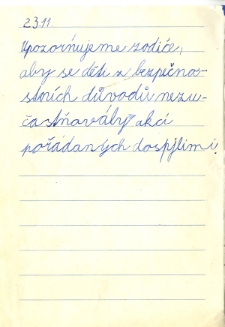 23.11
Upozorňujeme rodiče,
aby se děti z bezpečno-
stních důvodů nezú-
častňovaly akcí
pořádaných dospělími!